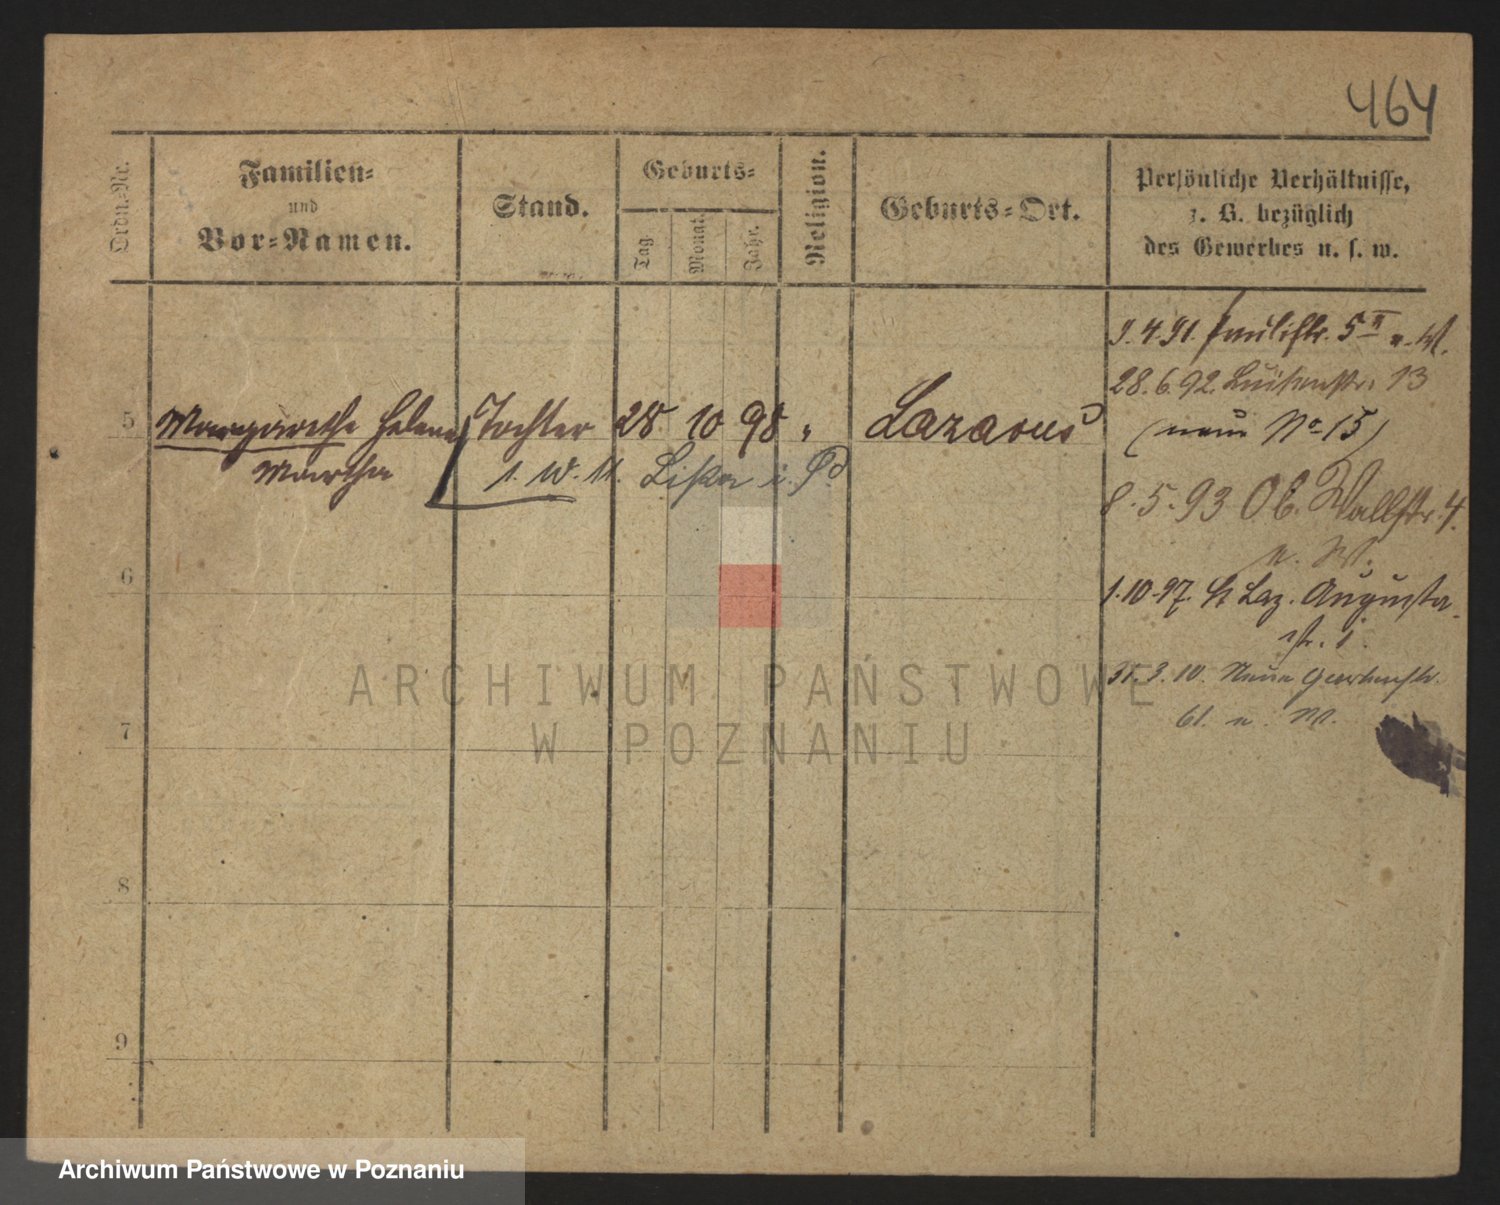 464
Ordn.-Nr.
Familien-
und
Vor-Namen.
Stand.
Geburts-
Tag.
Monat.
Jahr.
Religion.
Geburts-Ort.
Persönliche Verhältnisse,
z. B. bezüglich
des Gewerbes u. s. w.
9.4.91. Paulistr. 5 II n. W.
28.6.92. Luisenstr. 13
(neu No 15)
5 Margarethe Helene Tochter 28 10 98 " Lazarus
Martha 1. 10. 11. Lissa i. P.
8.5.93 Ob. Wallstr. 4.
n. W.
6
1.10.97. St Laz. Augusta-
str. 1.
31.3.10. Neue Gartenstr.
61. n. W.
7
8
9
ARCHIWUM PAŃSTWOWE
W POZNANIU
Archiwum Państwowe w Poznaniu